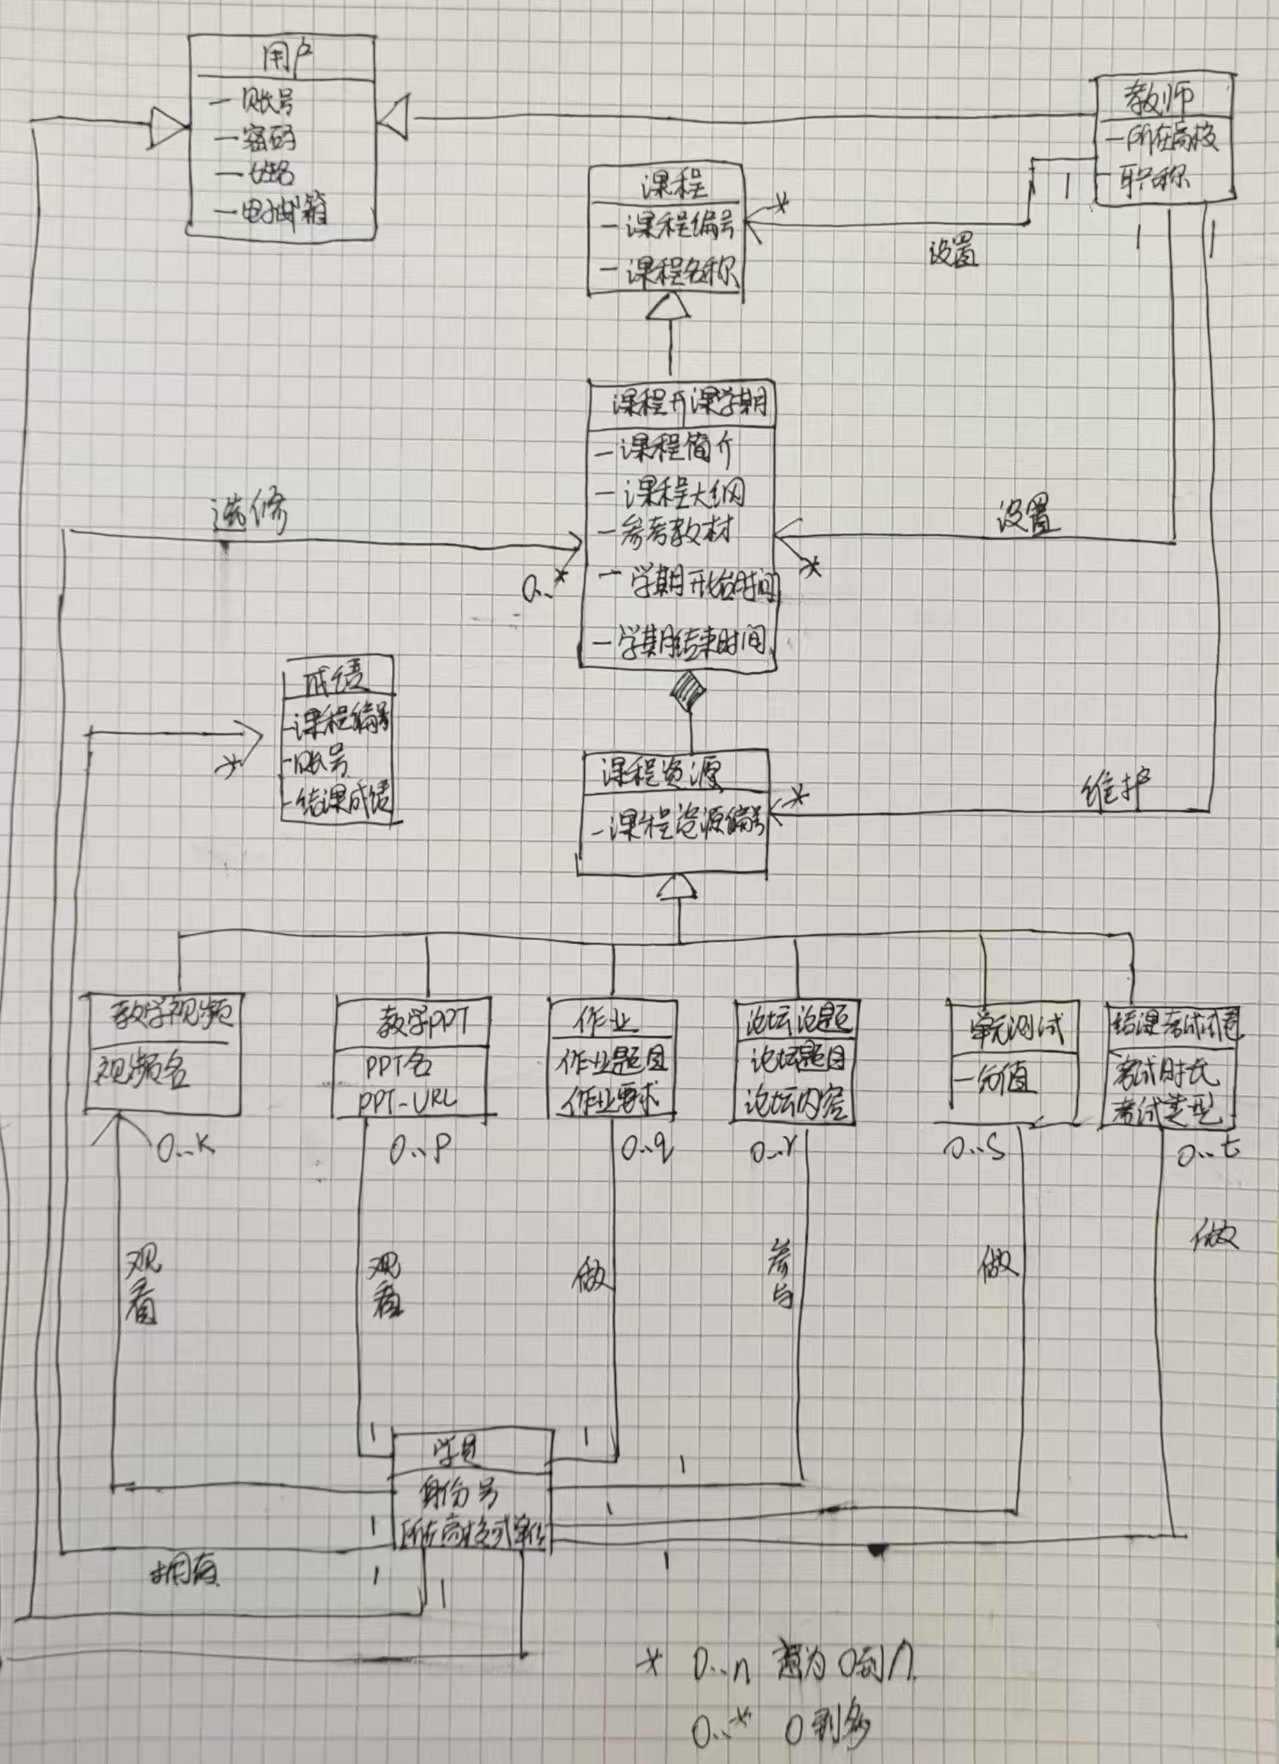 用户
-账号
-密码
-姓名
-电子邮箱
教师
-所在高校
-职称
课程
-课程编号
-课程名称
*
1
设置
1
1
课程开课学期
-课程简介
-课程大纲
-参考教材
-学期开始时间
-学期结束时间
选修
0..*
设置
*
成绩
-课程编号
-账号
-结课成绩
*
课程资源
-课程资源编号
*
维护
教学视频
视频名
教学PPT
PPT名
PPT-URL
作业
作业题目
作业要求
论坛话题
论坛题目
论坛内容
单元测试
-分值
结课考试试卷
考试时长
考试类型
0..k
0..p
0..q
0..r
0..s
0..t
观看
观看
做
参与
做
做
1
1
1
学员
身份号
所在高校或单位
1
1
1
拥有
1
1
* 0..n 意为0到n
0..* 0到多